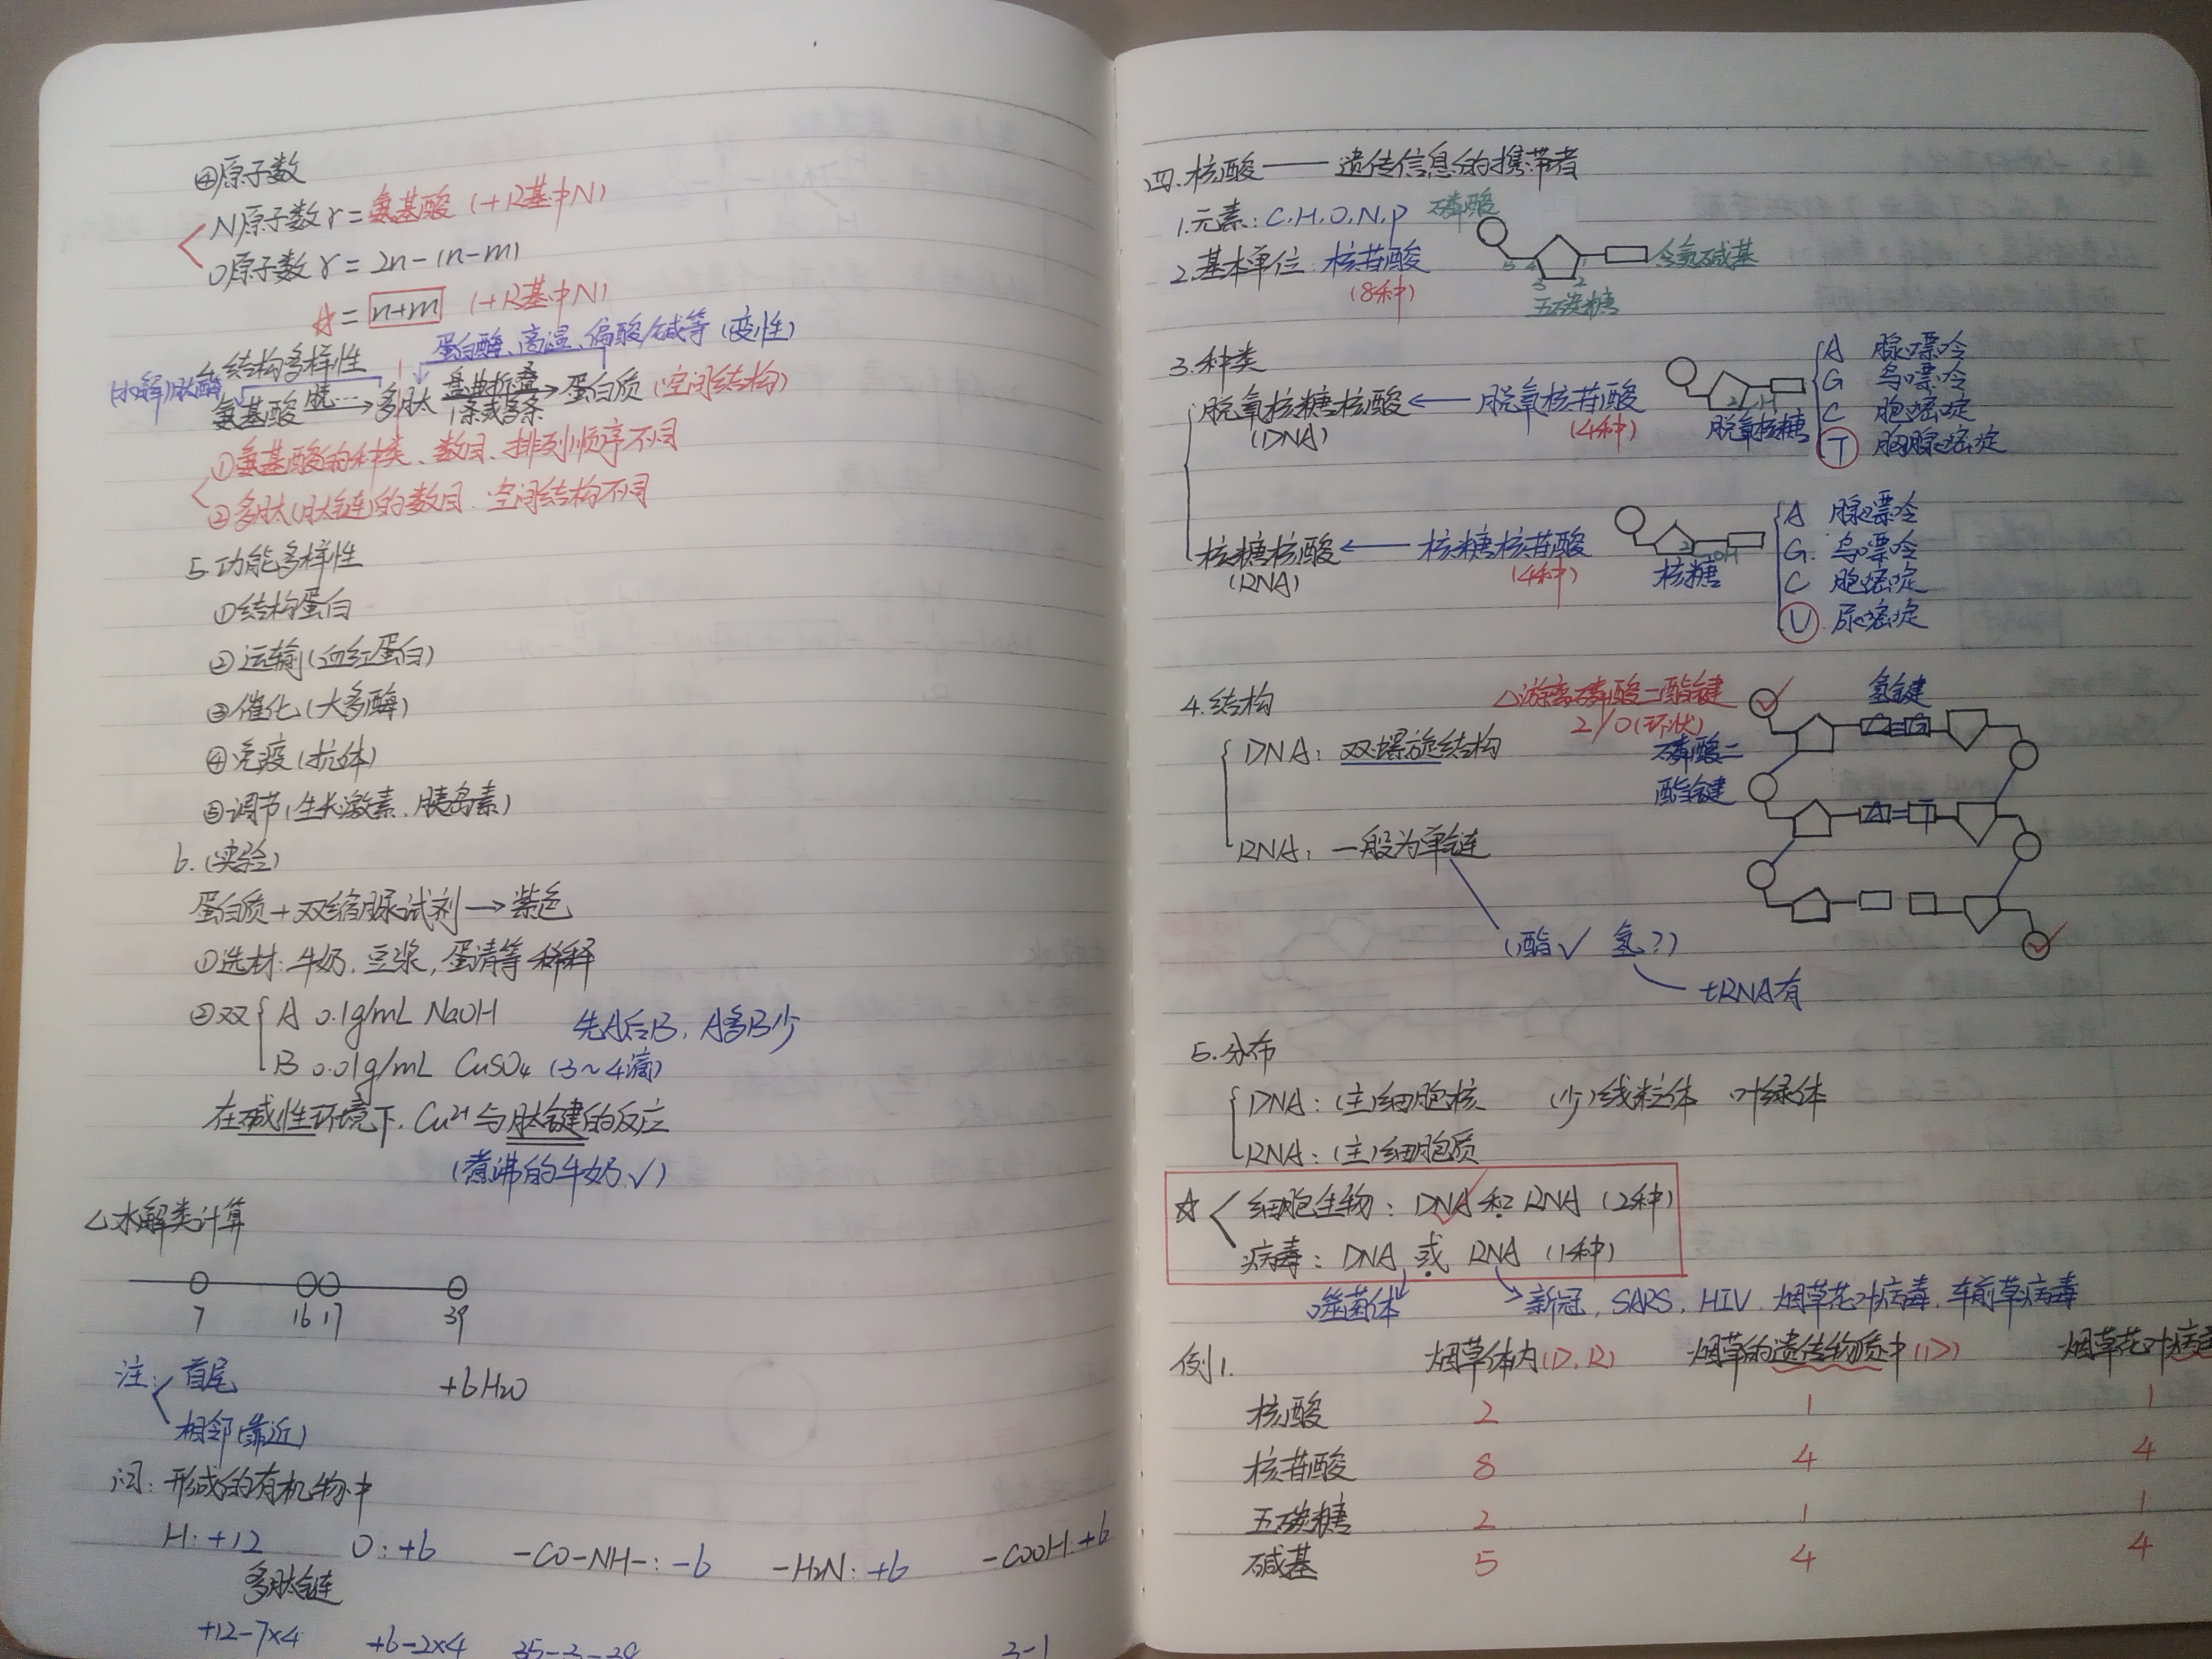 ④原子数
N原子数r=氨基酸(+R基中N)
O原子数r=2n-(n-m)
☆=n+m (+R基中N)
蛋白酶、高温、偏酸/碱等(变性)
4.结构多样性
(水解)肽酶
氨基酸 脱… → 多肽 盘曲折叠 1条或多条 → 蛋白质(空间结构)
①氨基酸的种类、数目、排列顺序不同
②多肽(肽链)的数目、空间结构不同
5.功能多样性
①结构蛋白
②运输(血红蛋白)
③催化(大多酶)
④免疫(抗体)
⑤调节(生长激素、胰岛素)
6.(实验)
蛋白质+双缩脲试剂→紫色
①选材:牛奶,豆浆,蛋清等 稀释
②双 A 0.1g/mL NaOH 先A后B,A多B少
B 0.01g/mL CuSO₄ (3~4滴)
在碱性环境下,Cu²⁺与肽键的反应
(煮沸的牛奶√)
△水解类计算
7 16 17 39
注: 首尾 +6H₂O
相邻(靠近)
问:形成的有机物中
H:+12 O:+6 -CO-NH-:-6 -H₂N:+6 -COOH:+6
多肽链
+12-7×4 +6-2×4 35-3-39 3-1
四.核酸——遗传信息的携带者
1.元素:C.H.O.N.P 磷酸
2.基本单位:核苷酸 含氮碱基
(8种) 5 4 3 2 1
五碳糖
3.种类
脱氧核糖核酸 ← 脱氧核苷酸
(DNA) (4种) 2 H 脱氧核糖
A 腺嘌呤
G 鸟嘌呤
C 胞嘧啶
T 胸腺嘧啶
核糖核酸 ← 核糖核苷酸
(RNA) (4种) 2 OH 核糖
A 腺嘌呤
G. 鸟嘌呤
C 胞嘧啶
U 尿嘧啶
4.结构 △游离磷酸二酯键 氢键
2/0(环状) C≡G
DNA:双螺旋结构 磷酸二
酯键
A=T
RNA:一般为单链
(酯√ 氢?)
tRNA有
5.分布
DNA:(主)细胞核 (少)线粒体 叶绿体
RNA:(主)细胞质
☆ 细胞生物:DNA和RNA(2种)
病毒:DNA 或 RNA (1种)
噬菌体 新冠,SARS,HIV,烟草花叶病毒,车前草病毒
例1. 烟草体内(D,R) 烟草的遗传物质中(D) 烟草花叶病毒
核酸 2 1 1
核苷酸 8 4 4
五碳糖 2 1 1
碱基 5 4 4